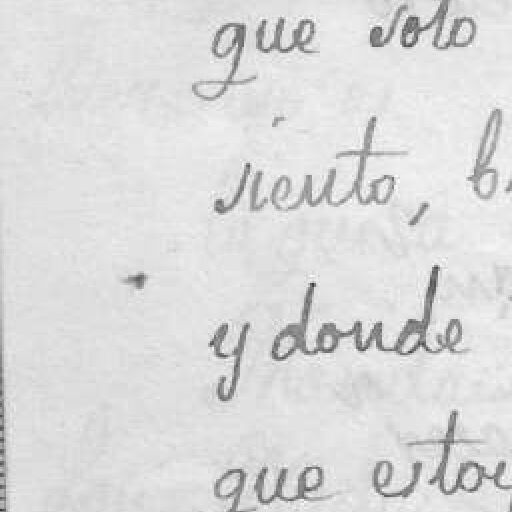 que solo
siento, b
y donde
que estoy